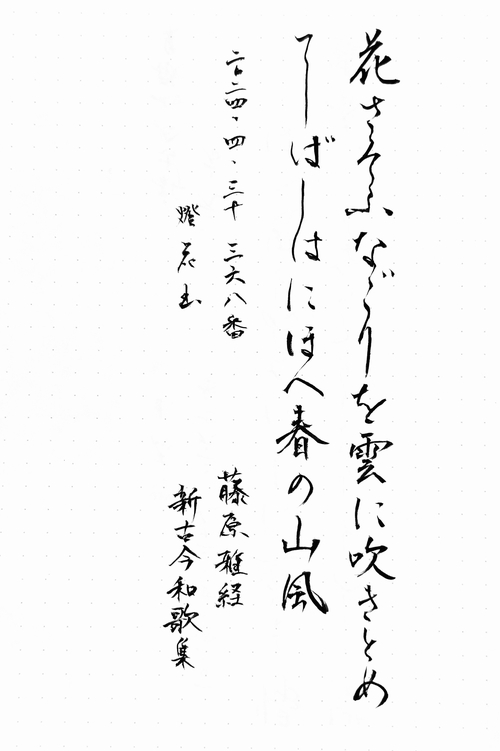 花さそふなごりを雲に吹きとめ
てしばしはにほへ春の山風
二〇二四、四、三十 三六八番
藤原雅経
新古今和歌集